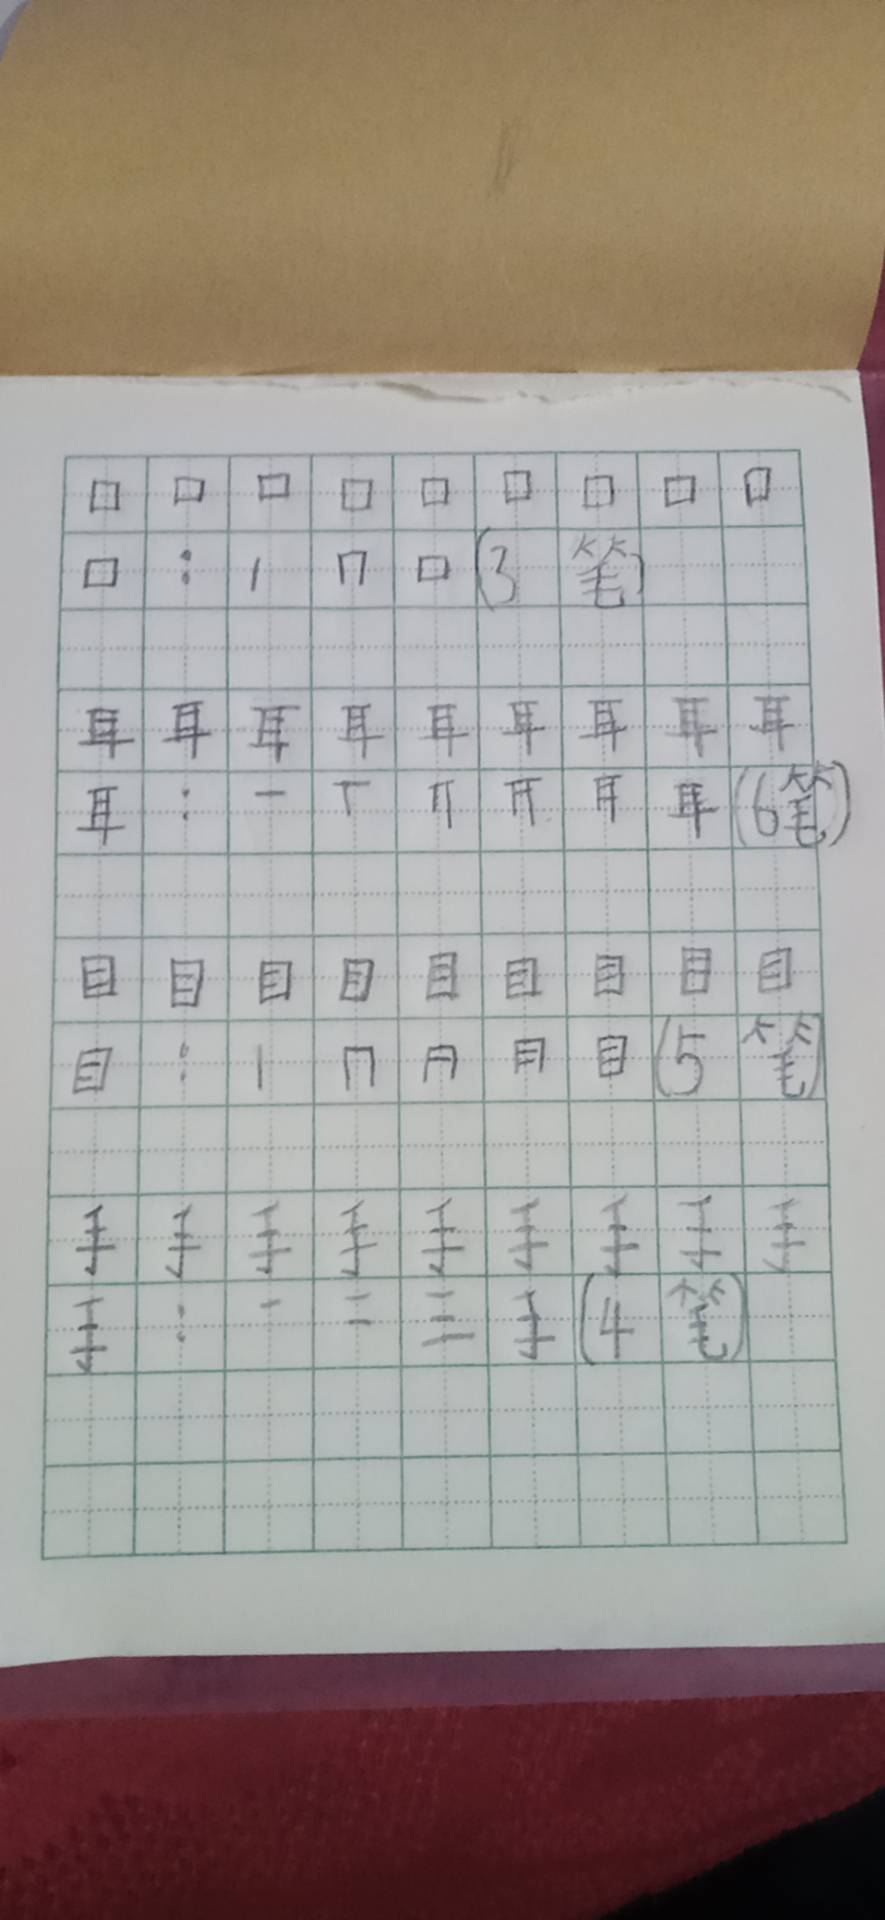 口口口口口口口口口
口：丨冂口(3笔)
耳耳耳耳耳耳耳耳耳
耳：一丅丌耳(6笔)
目目目目目目目目目
目：丨冂月目(5笔)
手手手手手手手手手
手：一二三手(4笔)